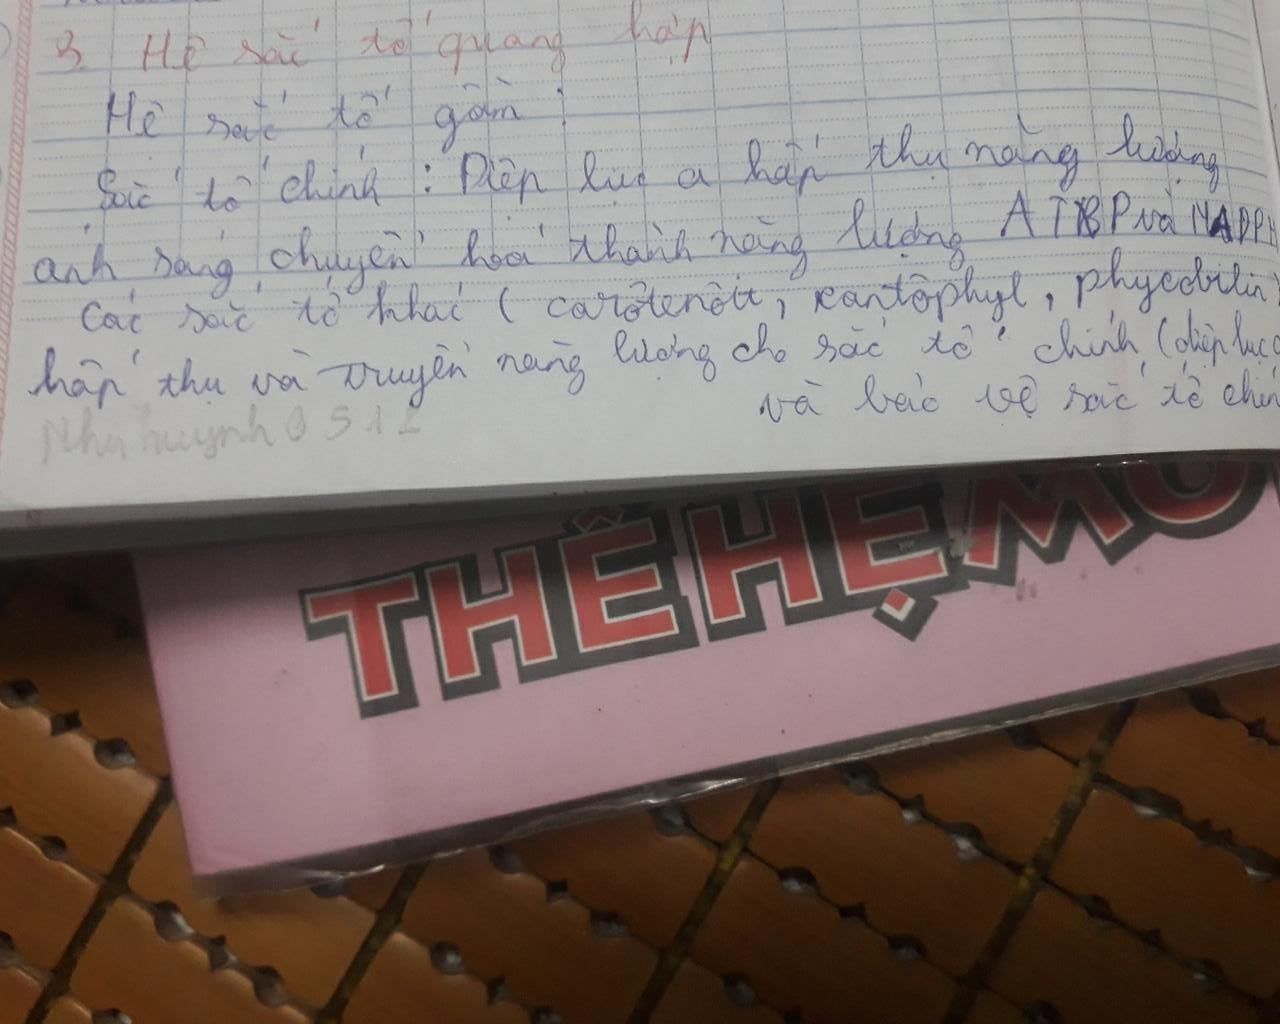 3 Hệ sắc tố quang hợp
Hệ sắc tố gồm :
Sắc tố chính : Diệp lục a hấp thụ năng lượng
ánh sáng chuyển hoá thành năng lượng ATP và NADPH
Các sắc tố khác ( carôtenôit, xantôphyl, phycobilin)
hấp thụ và truyền năng lượng cho sắc tố chính (diệp lục a
và bảo vệ sắc tố chín
Như huỳnh 0512
THẾ HỆ MỚ